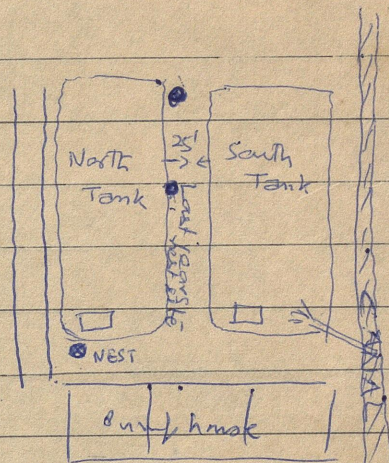 North
Tank
25'
South
Tank
Last year's
nest site
NEST
Pump house
CANAL